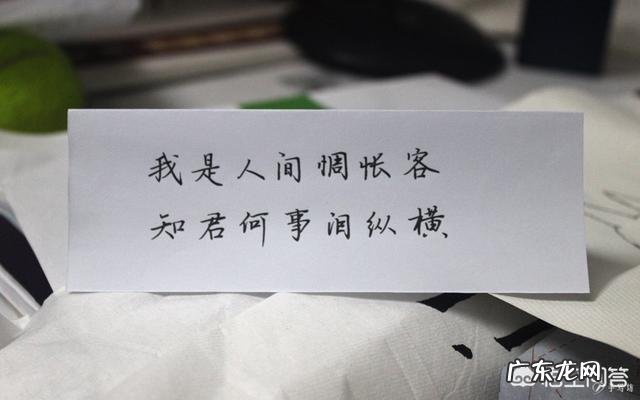 我是人间惆怅客
知君何事泪纵横
广东龙网